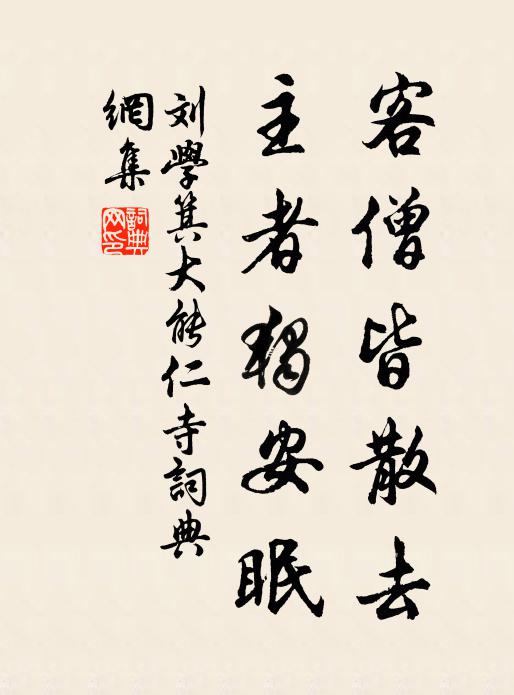 客僧皆散去
主者獨安眠
刘學箕大能仁寺詞典
網集
詞典網印